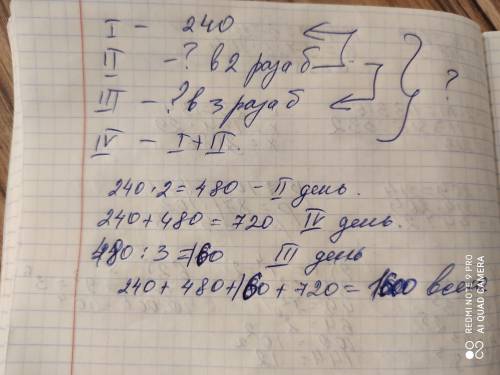 I - 240
II - ? в 2 раза б
III - ? в 3 раза б
?
IV - I + II.
240 · 2 = 480 - II день.
240 + 480 = 720 IV день.
480 : 3 = 160 III день
240 + 480 + 160 + 720 = 1600 всего
REDMI NOTE 9 PRO
AI QUAD CAMERA